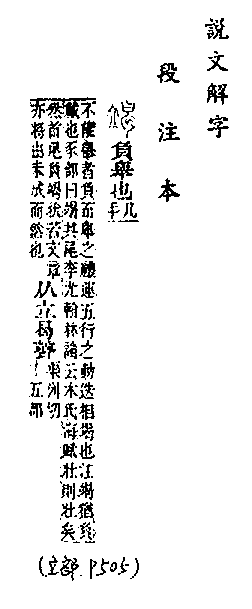 說文解字
段注本
竭 負舉也凡手
不能舉者負而舉之禮運五行之動迭相竭也注竭猶負
戴也豕部曰竭其尾李尤翰林論云木氏海賦壯則壯矣
然首尾負竭狀若文章
亦將由未成而然也
从立曷聲
渠列切
十五部
(立部 P505)